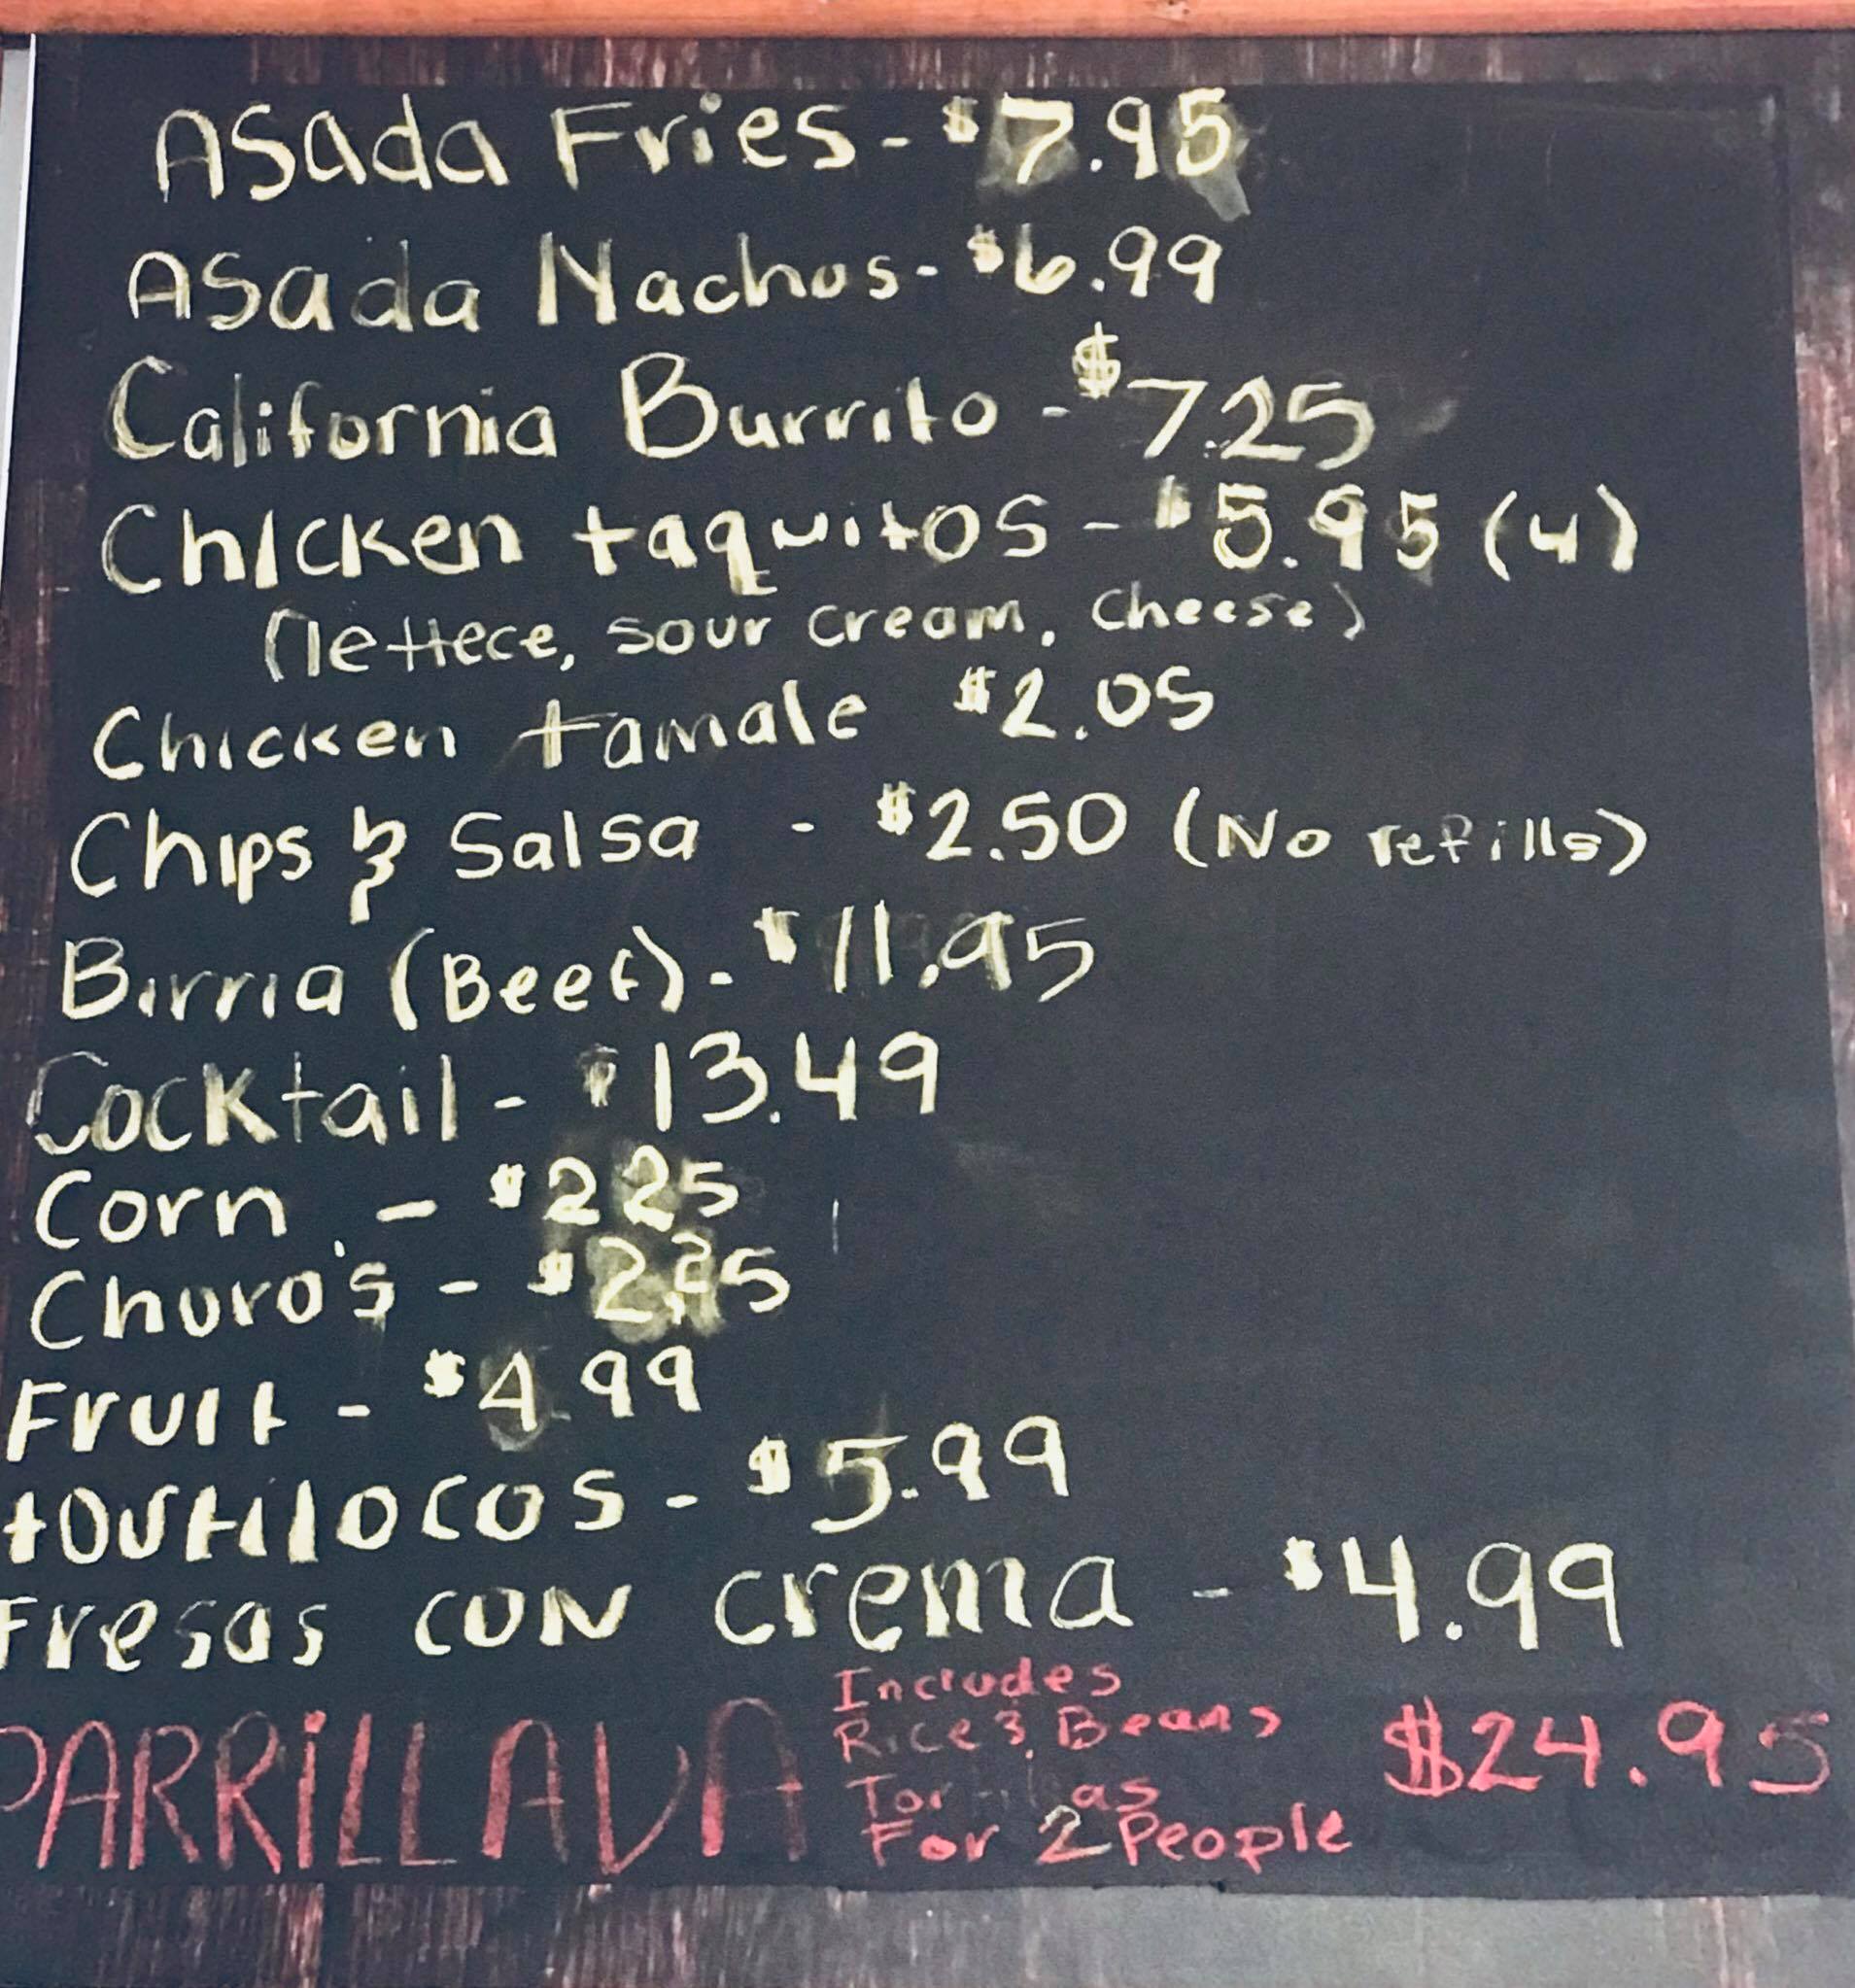 Asada Fries - $7.95
Asada Nachos - $6.99
California Burrito - $7.25
Chicken taquitos - $5.95 (4)
(lettece, sour cream, cheese)
Chicken tamale $2.05
Chips & Salsa - $2.50 (No refills)
Birria (Beef) - $11.95
Cocktail - $13.49
Corn - $2.25
Churo's - $2.25
Fruit - $4.99
tortilocos - $5.99
Fresas con crema - $4.99
PARRiLLADA Includes Rice & Beans $24.95
Tortillas
For 2 People